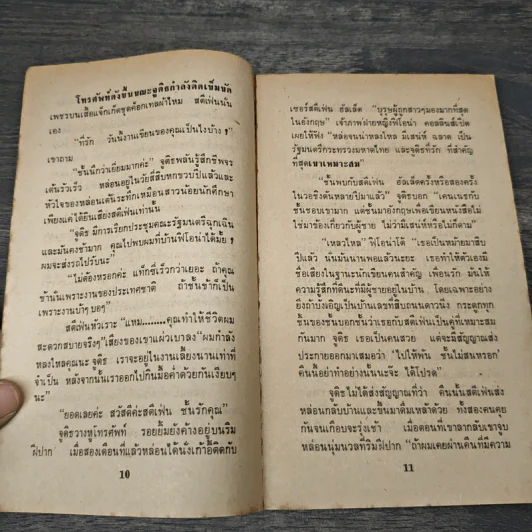 โทรศัพท์ดังขึ้นขณะจูดิธกำลังติดเข็มขัด
เพชรบนเสื้อแจ็กเก็ตชุดค้อกเทลผ้าไหม สตีเฟ่นนั่น
เอง
“ที่รัก วันนี้งานเขียนของคุณเป็นไงบ้าง ?”
เขาถาม
“ชั้นนึกว่าเยี่ยมมากค่ะ” จูดิธพลันรู้สึกชีพจร
เต้นรัวเร็ว หล่อนอยู่ในวัยสี่สิบหกขวบปีแล้วและ
หัวใจของหล่อนเต้นระทึกเหมือนสาวน้อยนักศึกษา
เพียงแค่ได้ยินเสียงสตีเฟ่นเท่านั้น
“จูดิธ มีการเรียกประชุมคณะรัฐมนตรีฉุกเฉิน
และมันคงช้ามาก คุณไปพบผมที่บ้านฟิโอน่าได้มั้ย ?
ผมจะส่งรถไปรับนะ”
“ไม่ต้องหรอกค่ะ แท็กซี่เร็วกว่าเยอะ ถ้าคุณ
ช้านั่นเพราะงานของประเทศชาติ ถ้าชั้นช้าก็เป็น
เพราะงานบ้าๆ บอๆ”
สตีเฟ่นหัวเราะ “แหม........คุณทำให้ชีวิตผม
สะดวกสบายจริงๆ” เสียงของเขาแผ่วเบาลง “ผมกำลัง
หลงไหลคุณนะ จูดิธ เราจะอยู่ในงานเลี้ยงนานเท่าที่
จำเป็น หลังจากนั้นเราออกไปกินมื้อค่ำด้วยกันเงียบๆ
นะ”
“ยอดเลยค่ะ สวัสดีค่ะสตีเฟ่น ชั้นรักคุณ”
จูดิธวางหูโทรศัพท์ รอยยิ้มยังค้างอยู่บนริม
ฝีปาก เมื่อสองเดือนที่แล้วหล่อนได้นั่งเก้าอี้ติดกับ
10
เซอร์สตีเฟ่น ฮัลเล็ต “บุรุษผู้ถูกสาวๆมองมากที่สุด
ในอังกฤษ” เจ้าภาพฝ่ายหญิงฟิโอน่า คอลลินส์เปิด
เผยให้ฟัง “หล่อจนน่าหลงไหล มีเสน่ห์ ฉลาด เป็น
รัฐมนตรีกระทรวงมหาดไทย และจูดิธที่รัก ที่สำคัญ
ที่สุดเขาเหมาะสม”
“ชั้นพบกับสตีเฟ่น ฮัลเล็ตครั้งหรือสองครั้ง
ในวอชิงตันหลายปีมาแล้ว” จูดิธบอก “เคนเนธกับ
ชั้นชอบเขามาก แต่ชั้นมาอังกฤษเพื่อเขียนหนังสือไม่
ใช่มาข้องเกี่ยวกับผู้ชาย ไม่ว่ามีเสน่ห์หรือไม่ก็ตาม”
“เหลวไหล” ฟิโอน่าโต้ “เธอเป็นหม้ายมาสิบ
ปีแล้ว นั่นมันนานพอแล้วนะยะ เธอทำให้ตัวเองมี
ชื่อเสียงในฐานะนักเขียนคนสำคัญ เพื่อนรัก มันให้
ความรู้สึกที่ดีนะที่มีผู้ชายอยู่ในบ้าน โดยเฉพาะอย่าง
ยิ่งถ้าบังเอิญเป็นบ้านเลขที่สิบถนนดาวนิ่ง กระดูกทุก
ชิ้นของชั้นบอกชั้นว่าเธอกับสตีเฟ่นเป็นคู่ที่เหมาะสม
กันมาก จูดิธ เธอเป็นคนสวย แต่จะมีสัญญาณส่ง
ประกายออกมาเสมอว่า ‘ไปให้พ้น ชั้นไม่สนหรอก’
คืนนี้อย่าทำอย่างนั้นนะจ๊ะ ได้โปรด”
จูดิธไม่ได้ส่งสัญญาณที่ว่า คืนนั้นสตีเฟ่นส่ง
หล่อนกลับบ้านและขึ้นมาดื่มเหล้าด้วย ทั้งสองคนคุย
กันจนเกือบจะรุ่งเช้า เมื่อตอนที่เขาลากลับเขาจูบ
หล่อนนุ่มนวลที่ริมฝีปาก “ถ้าผมเคยผ่านคืนที่มีความ
11